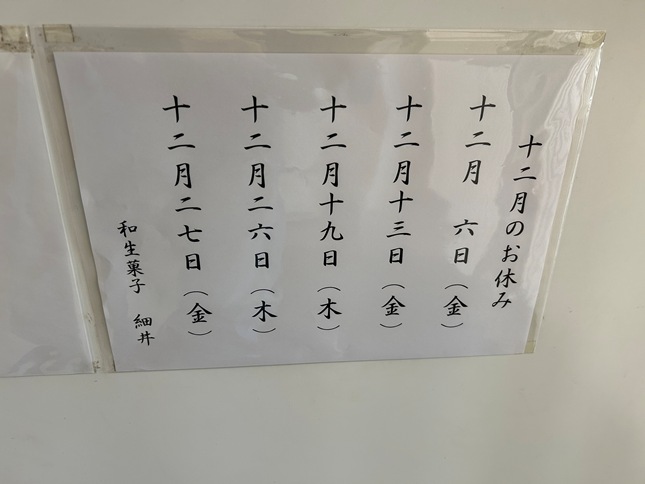 十二月のお休み
十二月　六日（金）
十二月十三日（金）
十二月十九日（木）
十二月二六日（木）
十二月二七日（金）
和生菓子　細井